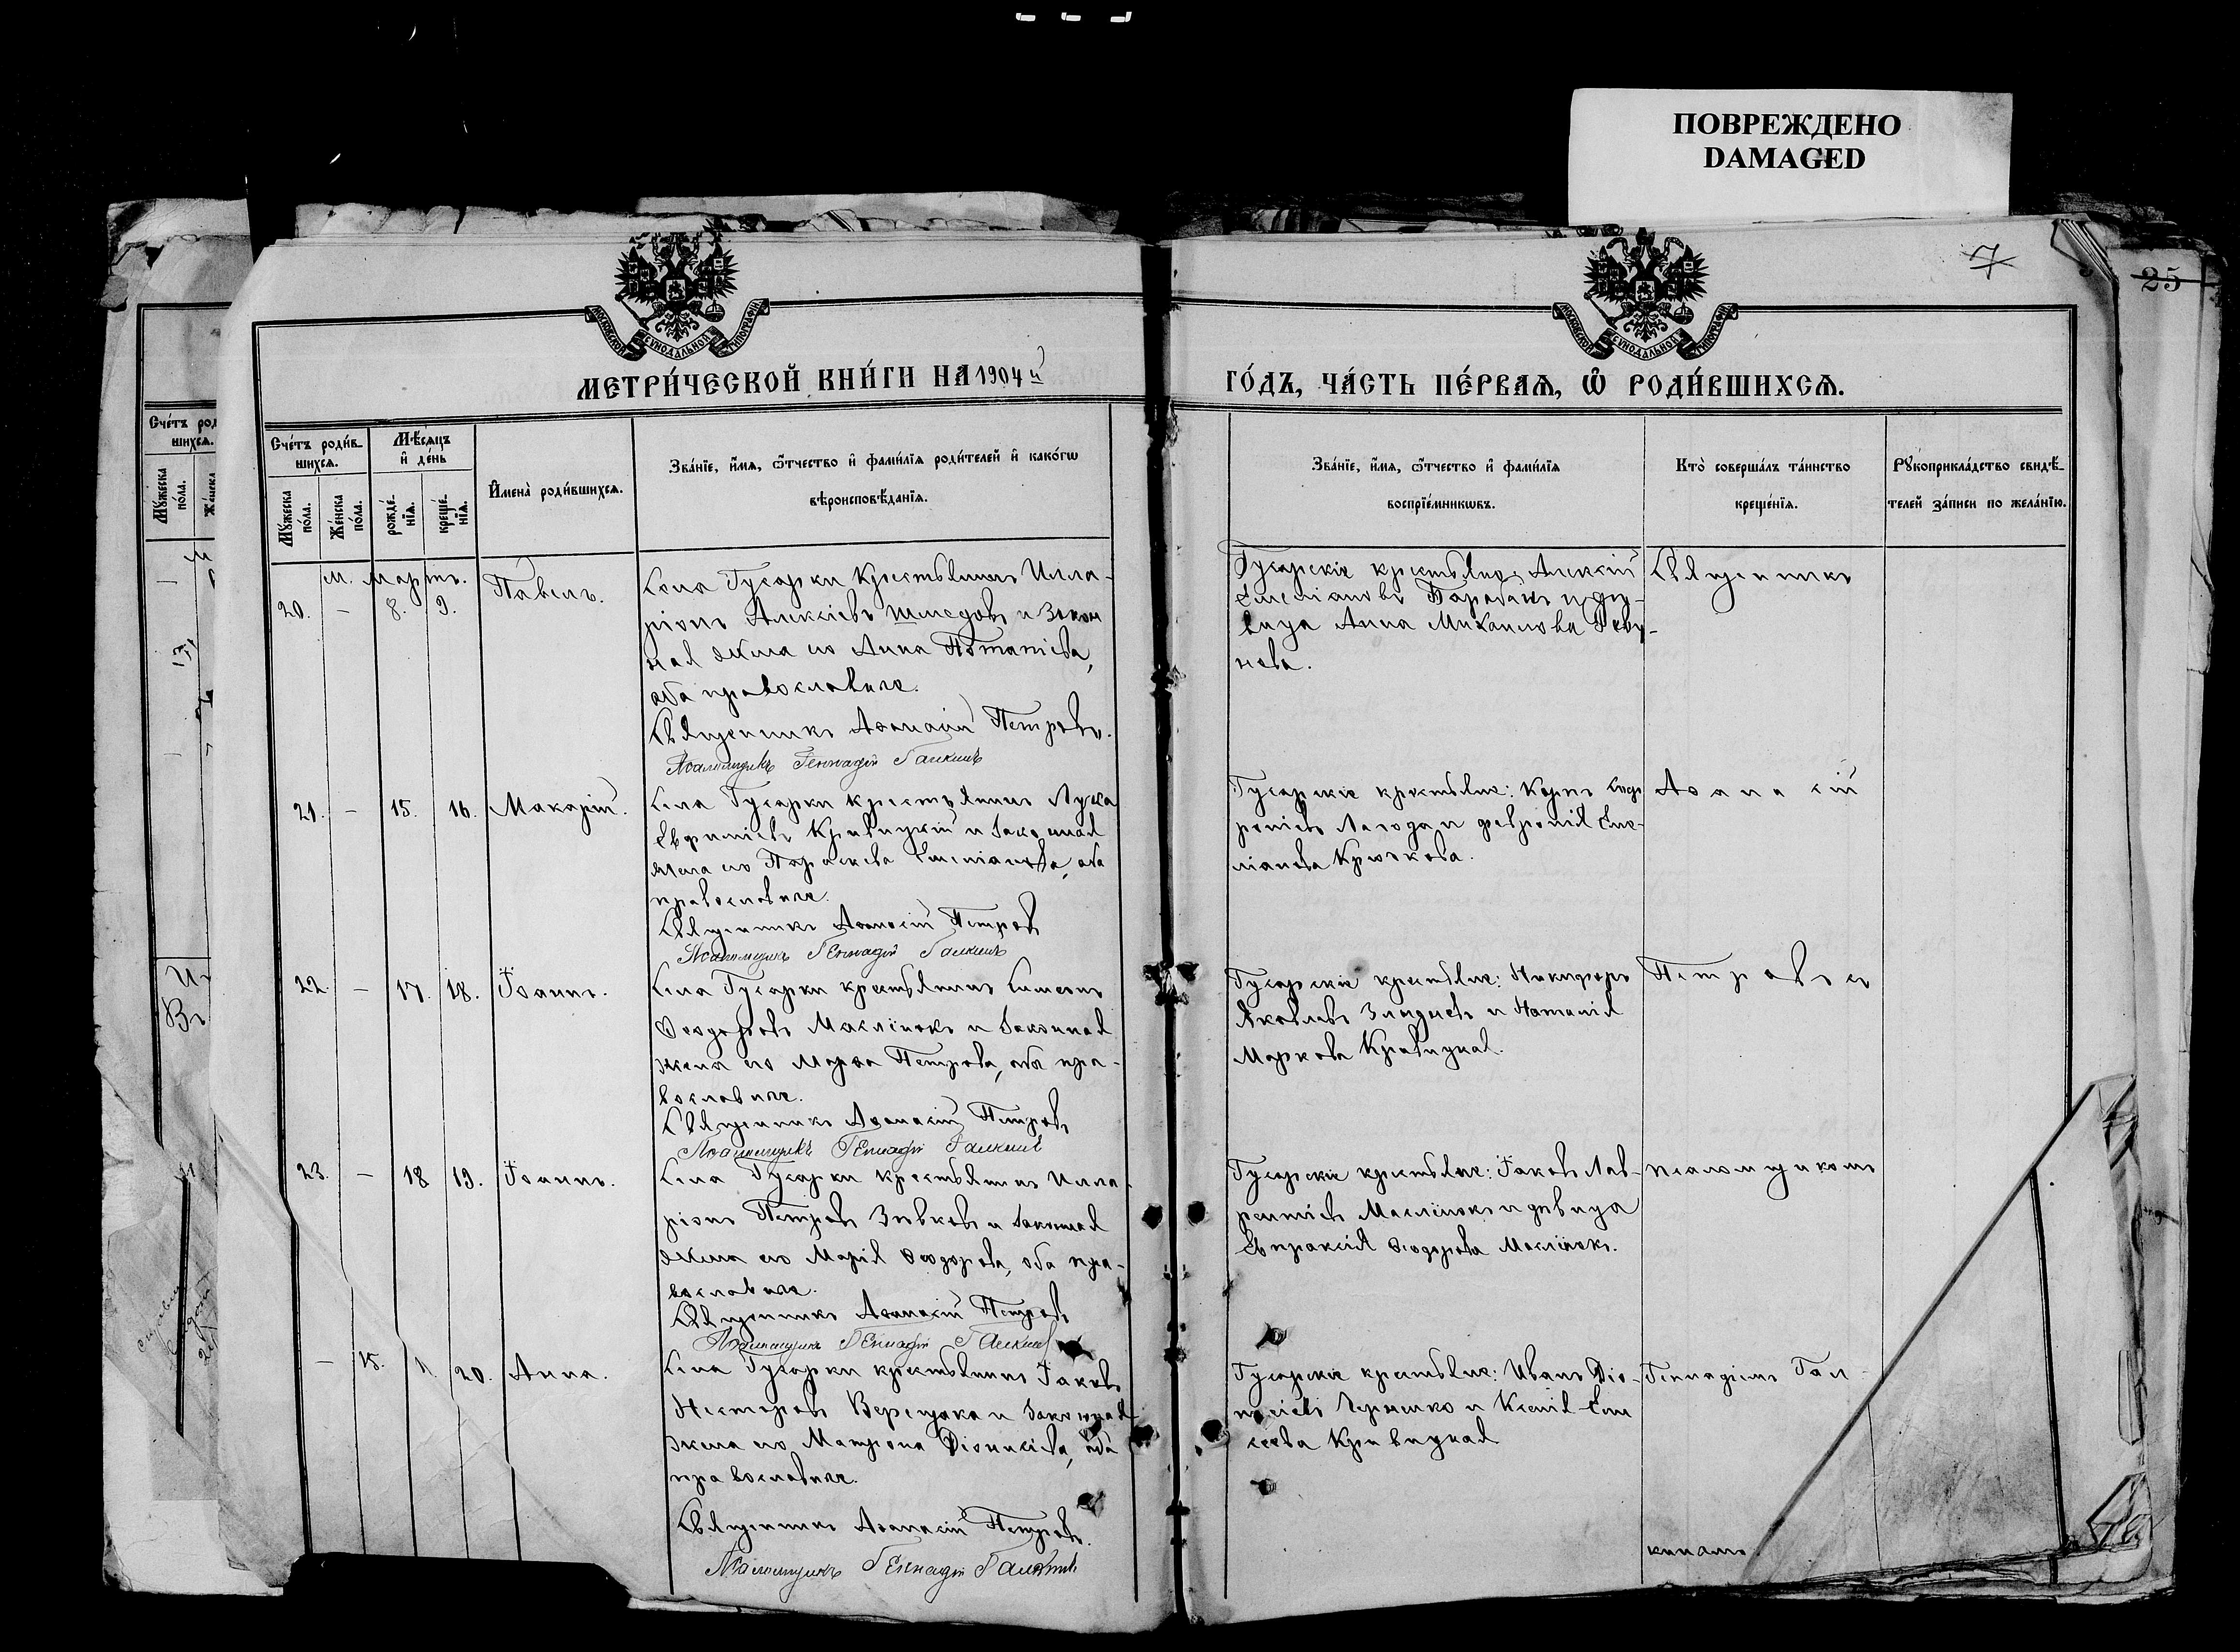 ПОВРЕЖДЕНО
DAMAGED
7
25
МОСКОВСКОЙ СУНОДАЛЬНОЙ ТИПОГРАФІИ
МОСКОВСКОЙ СУНОДАЛЬНОЙ ТИПОГРАФІИ
МЕТРИ́ЧЕСКОЙ КНИ́ГИ НА 1904 й
ГО́ДЪ, ЧА́СТЬ ПЕ́РВАѦ, Ѡ҆ РОДИ́ВШИХСѦ.
Сче́тъ роди́в-
шихсѧ.
Мꙋ́жеска по́ла.
Же́нска по́ла.
Мѣ́сѧцъ и҆ де́нь
рожде́-нїѧ.
креще́-нїѧ.
И҆мена̀ роди́вшихсѧ.
Зва́нїе, и҆́мѧ, ѻ҆́тчество и҆ фами́лїѧ роди́телей и҆ како́гѡ
вѣроисповѣ́данїѧ.
Зва́нїе, и҆́мѧ, ѻ҆́тчество и҆ фами́лїѧ
воспрїе́мникѡвъ.
Кто̀ соверша́лъ та́инство
креще́нїѧ.
Рꙋкоприкла́дство свидѣ́-
телей за́писи по жела́нїю.
м. Мартъ.
20. – 8. 9. Павелъ.
Села Гусарки крестьянинъ Илла-
ріонъ Алексіевъ и закон
ная жена его Анна Потапіева,
оба православные.
Священникъ Аѳанасій Петровъ.
Псаломщикъ Геннадій Галкинъ
Гусарскіе крестьяне: Алексій
Емеліановъ Барабаш и дѣ-
вица Анна Михаилова Реву-
нова.
Священникъ
21. – 15. 16. Макарій.
Села Гусарки крестьянинъ Лука
Евфиміевъ Кривицкій и законная
жена его Параскева Емеліанова, оба
православные.
Священникъ Аѳанасій Петровъ
Псаломщикъ Геннадій Галкинъ
Гусарскіе крестьяне: Карпъ Соф
роніевъ Лагода и Февронія Еме-
ліанова Крючкова.
Аѳанасій
22. – 17. 18. Іоаннъ.
Села Гусарки крестьянинъ Симеонъ
Ѳеодоровъ Маслюкъ и законная
жена его Марѳа Петрова, оба пра-
вославные.
Священникъ Аѳанасій Петровъ
Псаломщикъ Геннадій Галкинъ
Гусарскіе крестьяне: Никифоръ
Яковлевъ и Наталія
Маркова Кривицкая.
Петровъ съ
23. – 18 19. Іоаннъ.
Села Гусарки крестьянинъ Илла-
ріонъ Петровъ Зѣвковъ и законная
жена его Марія Ѳеодорова, оба пра-
вославные.
Священникъ Аѳанасій Петровъ
Псаломщикъ Геннадій Галкинъ
Гусарскіе крестьяне: Іаковъ Лав-
рентіевъ Маслюкъ и дѣвица
Евпраксія Ѳеодорова Маслюкъ.
псаломщикомъ
– 15. 20. Анна.
Села Гусарки крестьянинъ Іаковъ
Несторовъ Верещака и законная
жена его Матрона Діонисіева, оба
православные.
Священникъ Аѳанасій Петровъ.
Псаломщикъ Геннадій Галкинъ
Гусарскіе крестьяне: Иванъ Діо-
нисіевъ и Ксенія Ели
сеева Кривицкая
Геннадіемъ Гал-
кинамъ